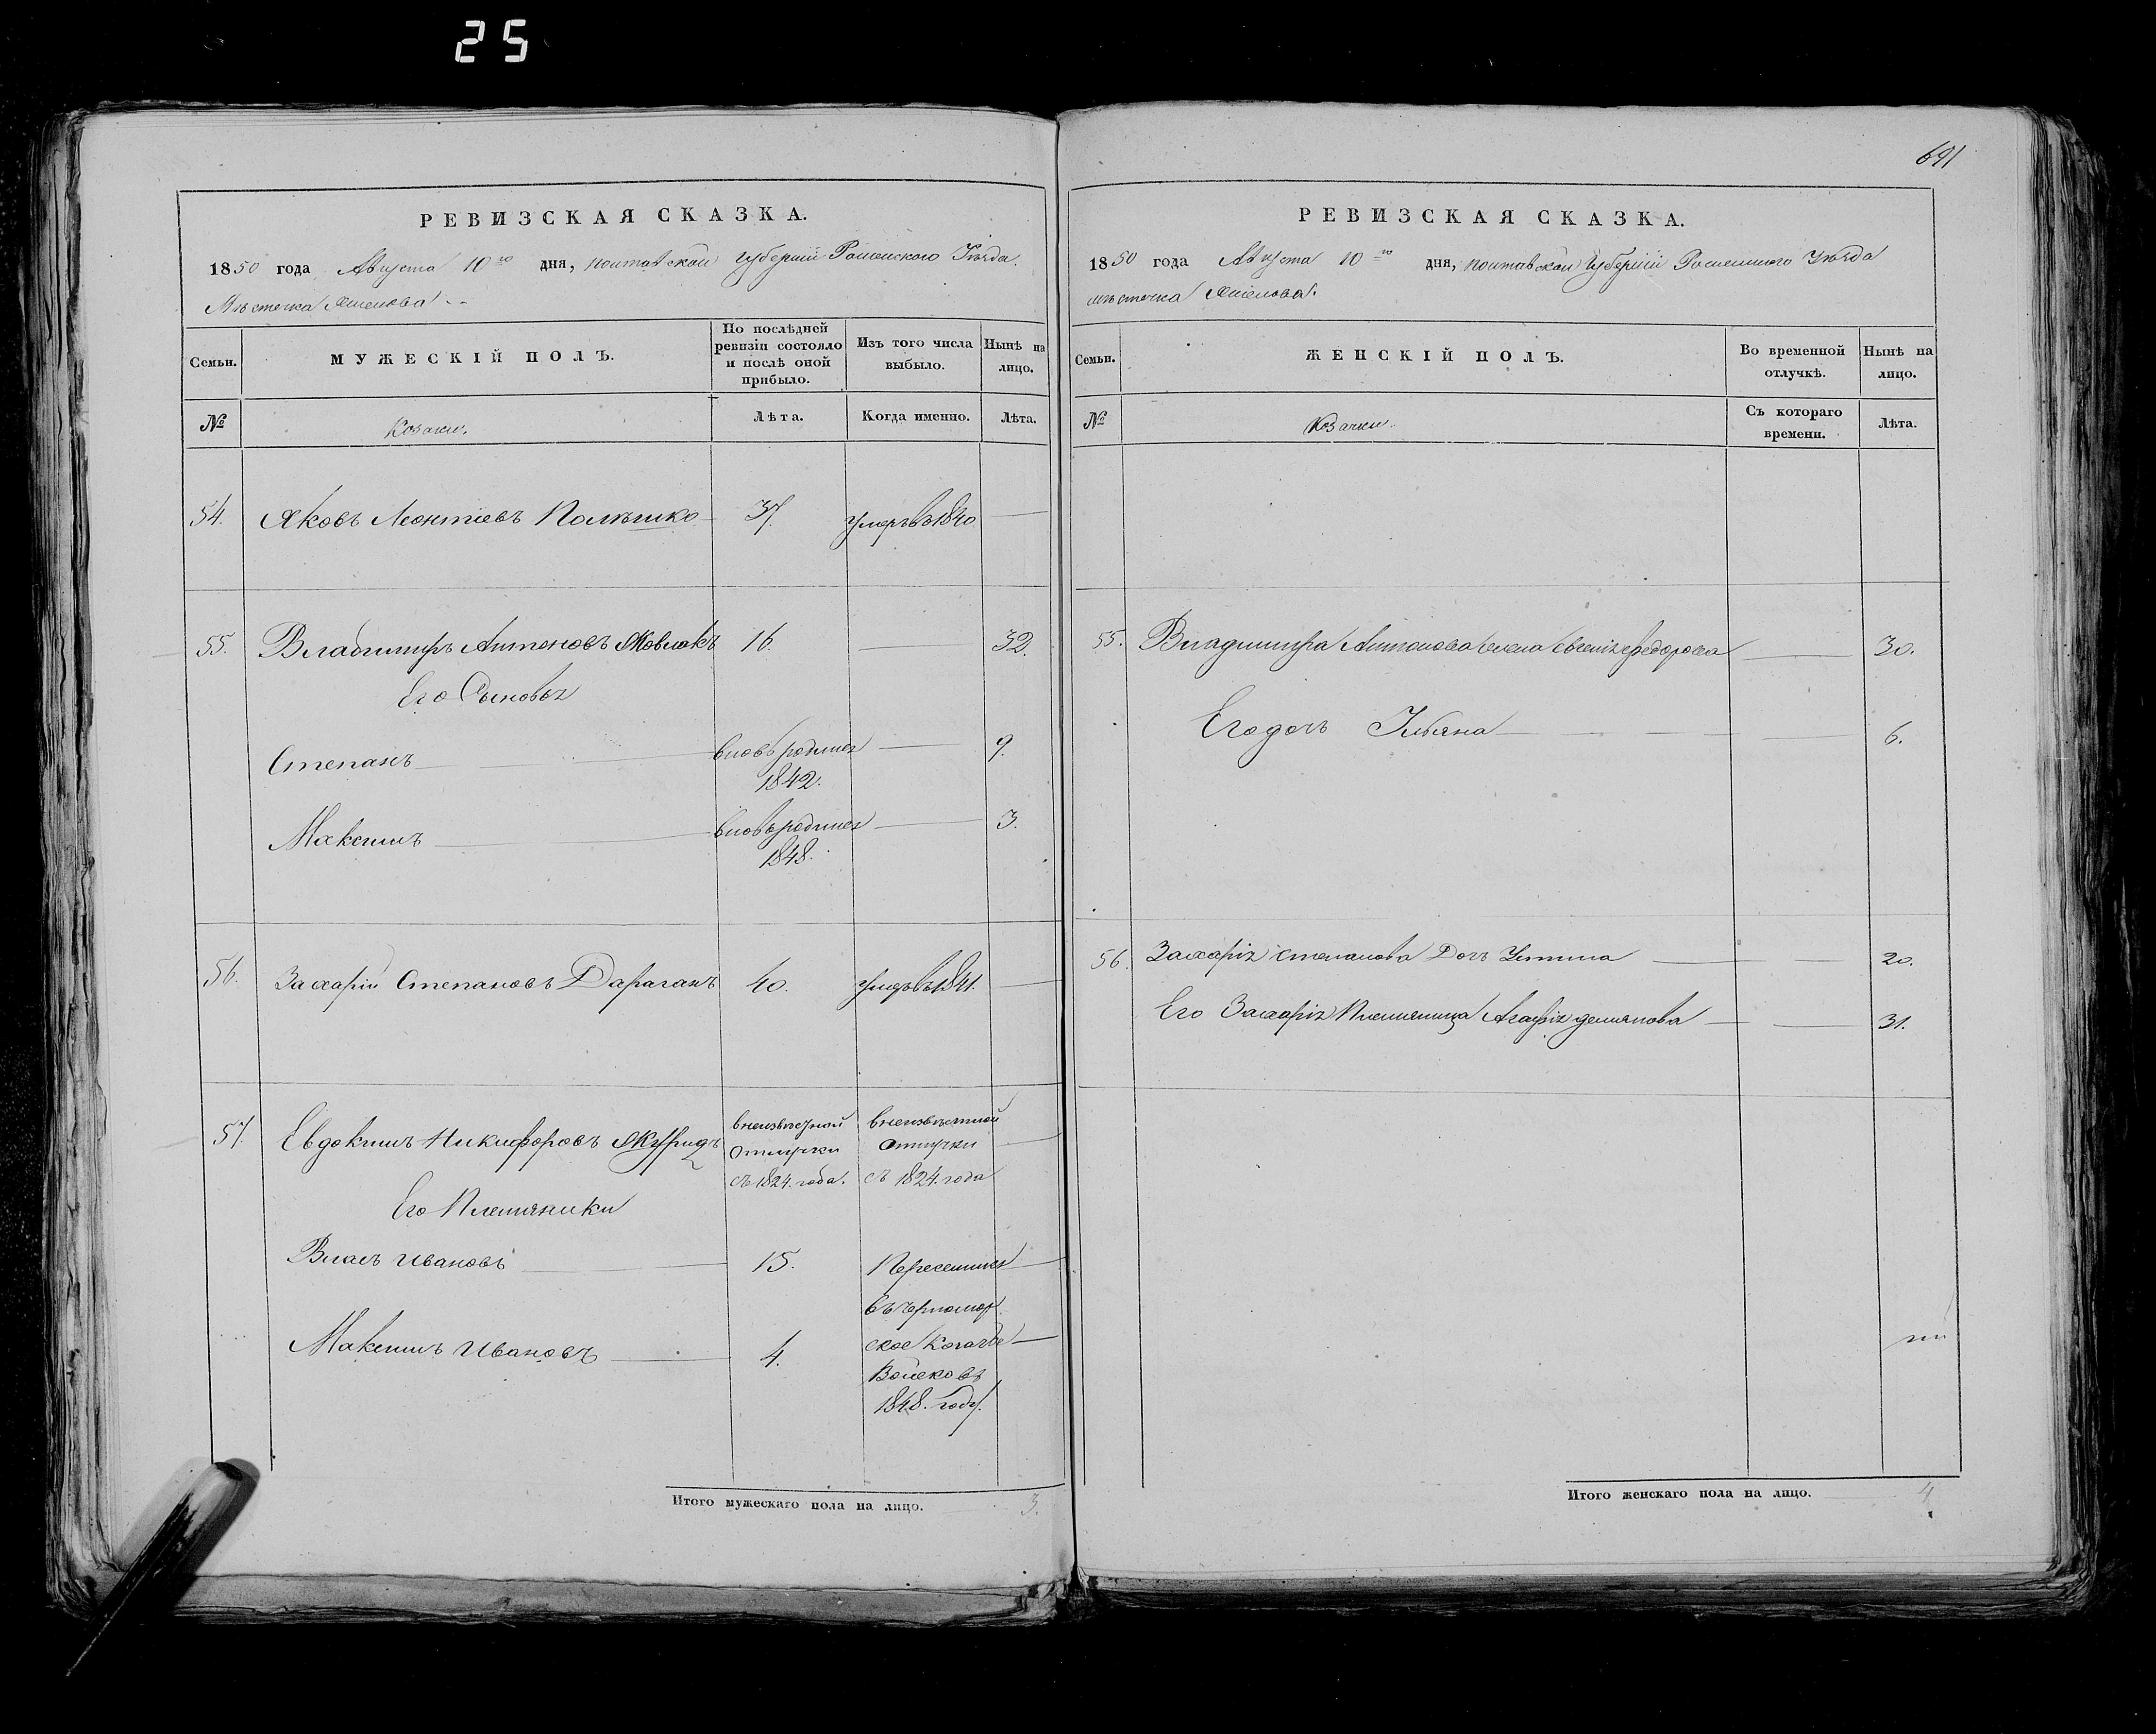 25
691
РЕВИЗСКАЯ СКАЗКА.
1850 года Августа 10го дня, Полтавской Губерніи Роменского Уѣзда
Мѣстечка
Семьи. МУЖЕСКІЙ ПОЛЪ. По послѣдней ревизіи состояло и послѣ оной прибыло. Изъ того числа выбыло. Нынѣ на лицо.
№ Козаки. Лѣта. Когда именно. Лѣта.
54. Яковъ Леонтіевъ 37. умеръ въ 1840
55. Владимиръ Антоновъ 16. 32.
Его Сыновья
Степанъ вновь родился 9.
1842.
Максимъ вновь родился 3.
1848.
56. Захарій Степановъ Дараганъ 40. умеръ въ 1841.
57. Евдокимъ Никифоровъ
в неизвѣстной отлучки съ 1824. года.
в неизвѣстной отлучки съ 1824. года
Его Племяники
Власъ Ивановъ 15. Переселился
въ Черномор
Максимъ Ивановъ 4. ское Козачье
Войско въ
1848. году.
Итого мужескаго пола на лицо. 3.
РЕВИЗСКАЯ СКАЗКА.
1850 года Августа 10го дня, Полтавской Губерніи Роменского Уѣзда
мѣстечка
Семьи. ЖЕНСКІЙ ПОЛЪ. Во временной отлучкѣ. Нынѣ на лицо.
№ Козачки. Съ котораго времени. Лѣта.
55. Владимира Антонова жена Евгенія Федорова 30.
Его дочь Ульяна 6.
56. Захарія Степанова Дочь Устина 20.
Его Захарія Племяница Агафія Демянова 31.
Итого женскаго пола на лицо. 4